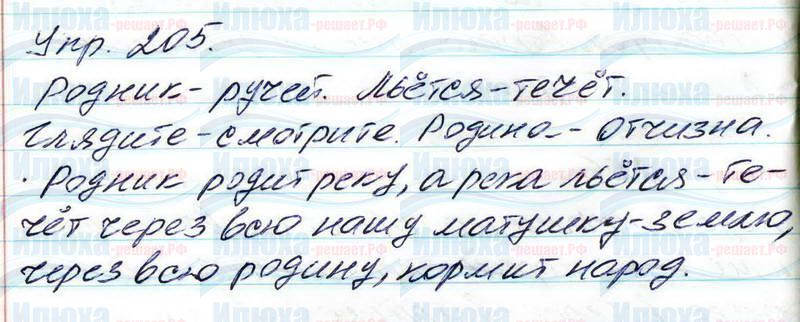 Упр. 205.
Родник - ручей. Льётся - течёт.
Глядите - смотрите. Родина - отчизна.
Родник родит реку, а река льётся - те-
чёт через всю нашу матушку - землю,
через всю родину, кормит народ.